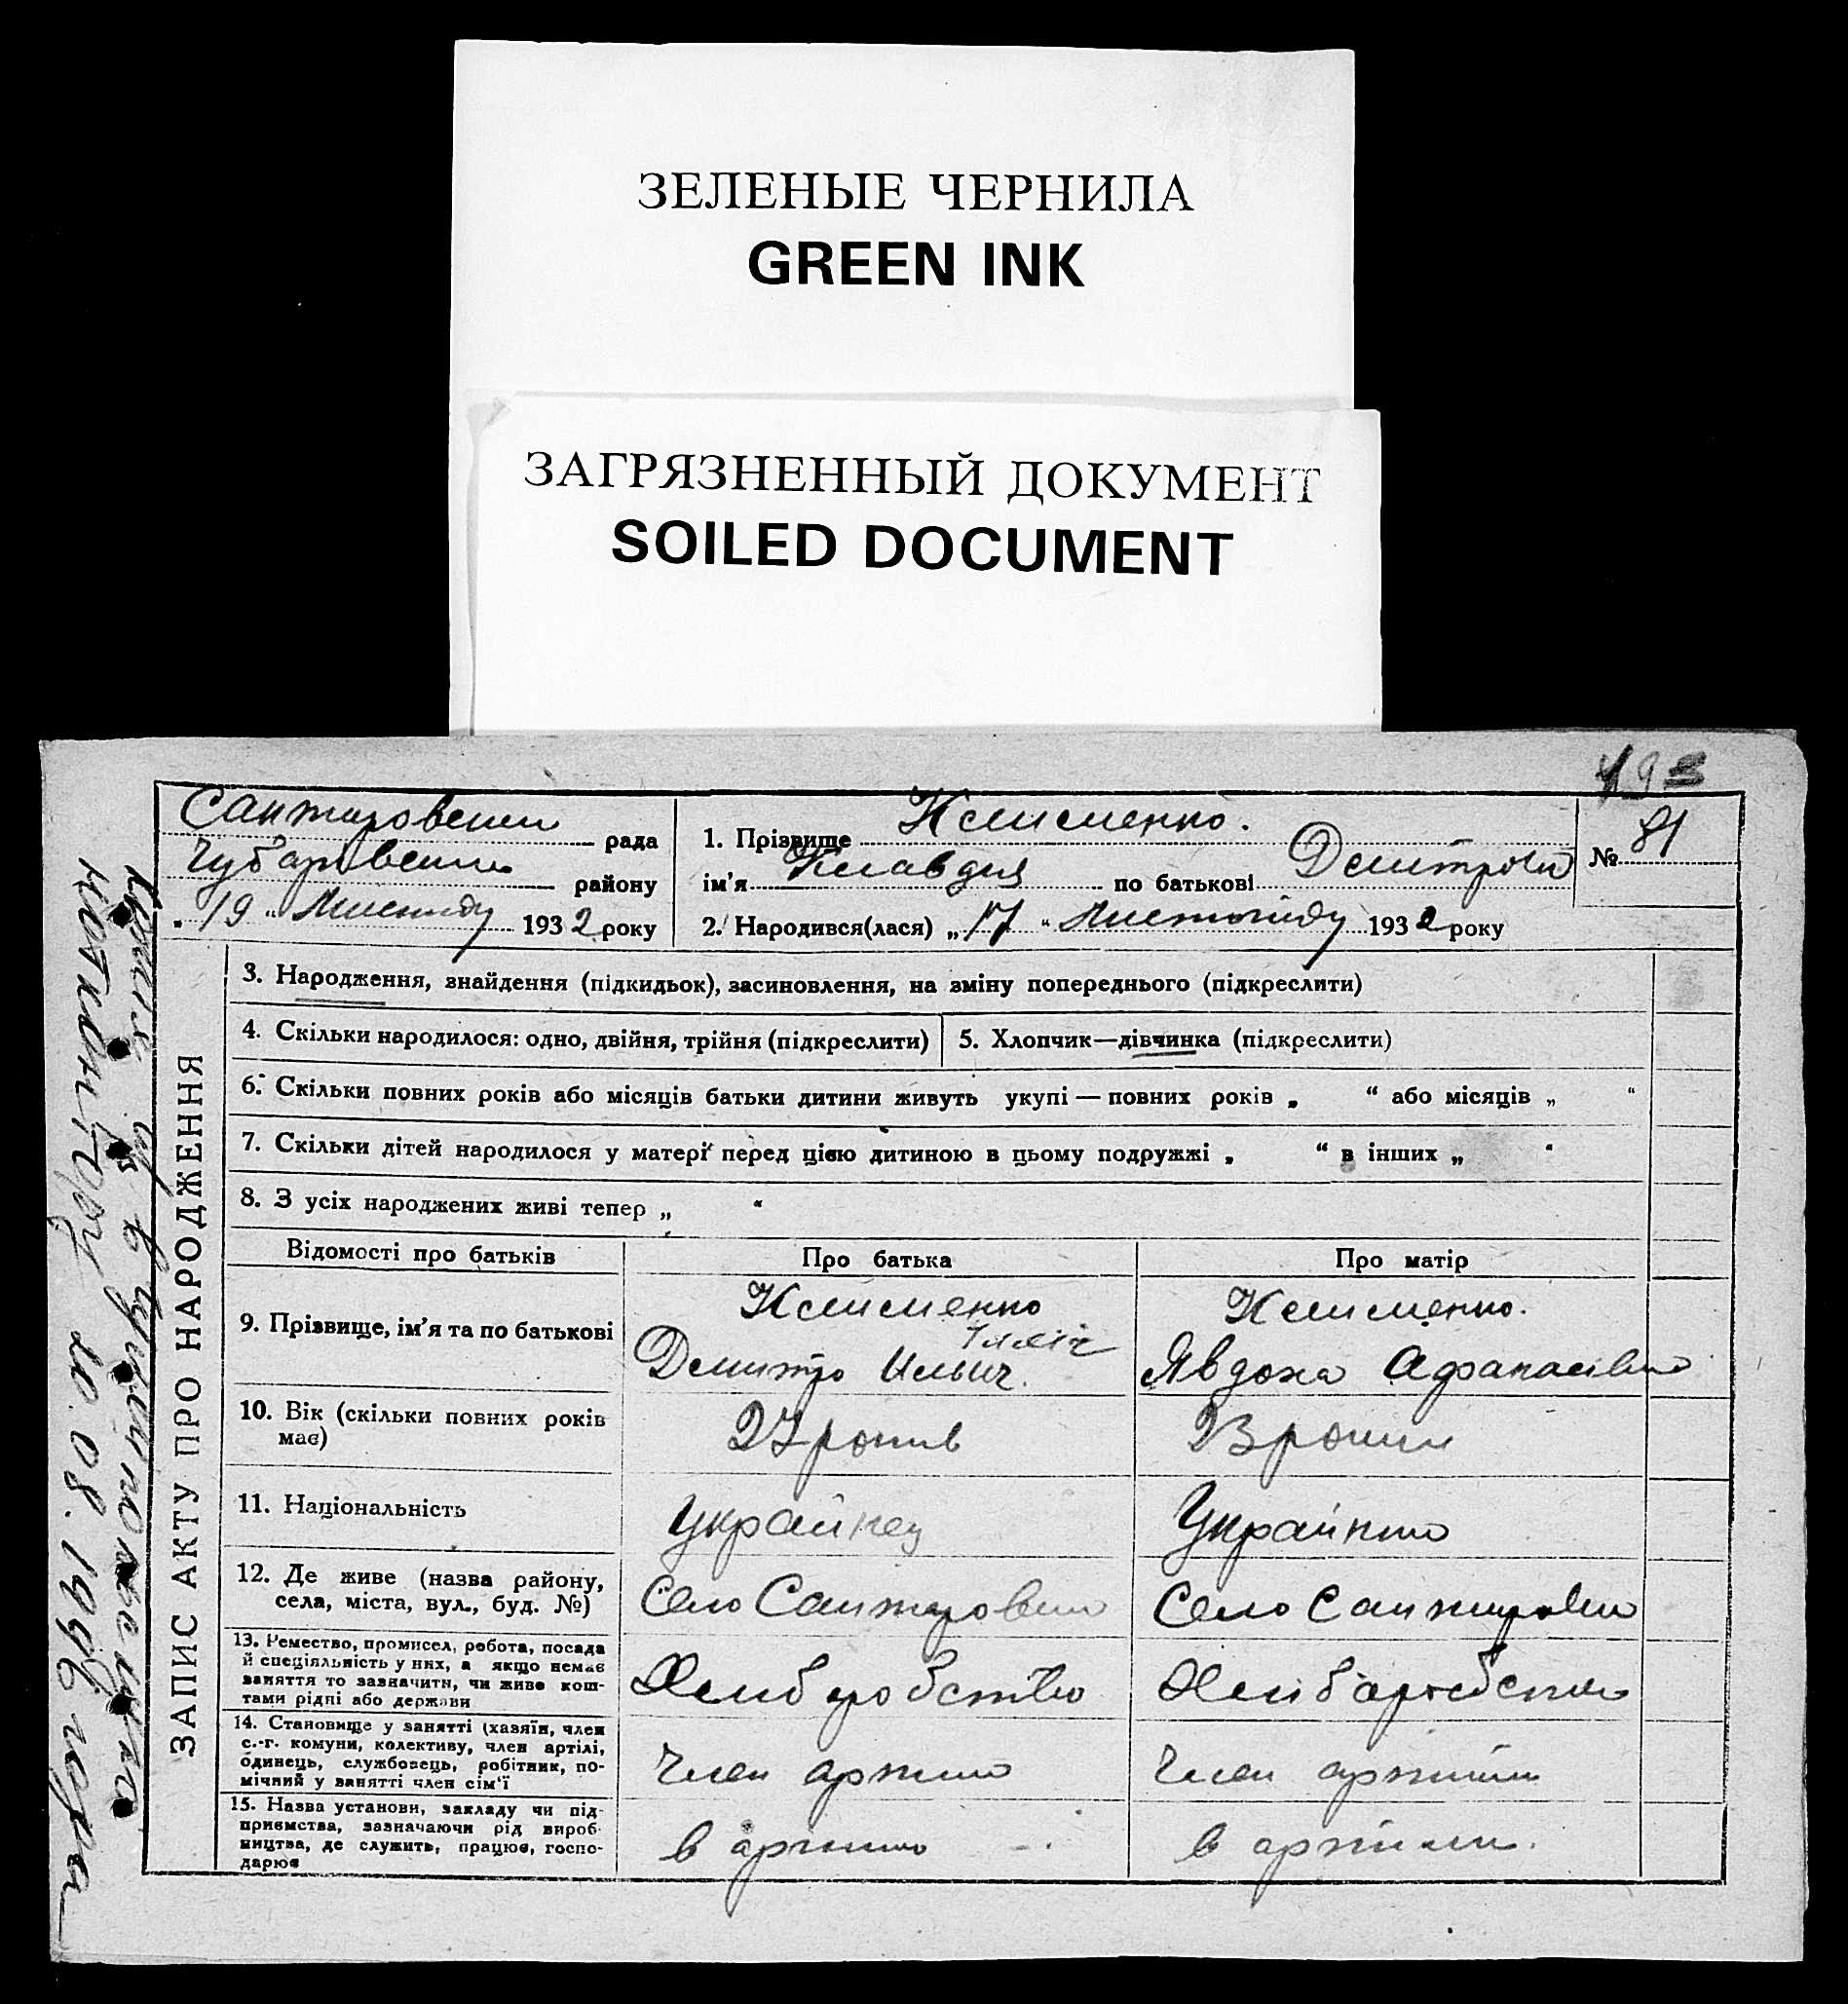 ЗЕЛЕНЫЕ ЧЕРНИЛА
GREEN INK
ЗАГРЯЗНЕННЫЙ ДОКУМЕНТ
SOILED DOCUMENT
рада
району
„ 19 “ 1932 року
1. Прізвище Клименко.
ім’я Клавдия по батькові
2. Народився(лася) „17“ Листопаду 1932 року
№ 81
ЗАПИС АКТУ ПРО НАРОДЖЕННЯ
3. Народження, знайдення (підкидьок), засиновлення, на зміну попереднього (підкреслити)
4. Скільки народилося: одно, двійня, трійня (підкреслити)
5. Хлопчик—дівчинка (підкреслити)
6. Скільки повних років або місяців батьки дитини живуть укупі — повних років „ “ або місяців „ “
7. Скільки дітей народилося у матері перед цією дитиною в цьому подружжі „ “ в інших „ “
8. З усіх народжених живі тепер „ “
Відомості про батьків
Про батька
Про матір
9. Прізвище, ім’я та по батькові
Клименко
Ілліч
Дмитро Ильич.
Клименко.
Явдоха Афанасівна
10. Вік (скільки повних років має)
27 років
23 роки
11. Національність
Украйнец
Украйнка
12. Де живе (назва району,
села, міста, вул., буд. №)
Село
Село
13. Ремество, промисел, робота, посада
й спеціяльність у них, а якщо немає
заняття то зазначити, чи живе кош-
тами рідні або держави
Хлиборобство
14. Становище у занятті (хазяїн, член
с.-г. комуни, колективу, член артілі,
одинець, службовець, робітник, по-
мічний у занятті член сім’ї
Член артили
Член артили
15. Назва установи, закладу чи під-
приємства, зазначаючи рід вироб-
ництва, де служить, працює, госпо-
дарює
в артили
в артили.